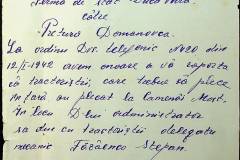 Ferma de Stat
către
Pretura Domanovca.
La ordinul Dvs. telefonic No 20 din
12/I-1942 avem onoare a vă raporta
că tractoristii, care trebue să plece
în țară au plecat la Camenca Mont.
În locu D-lui administrator
sa dus cu tractoristii delegatu
mecanic Tăbăcenco Stepan.